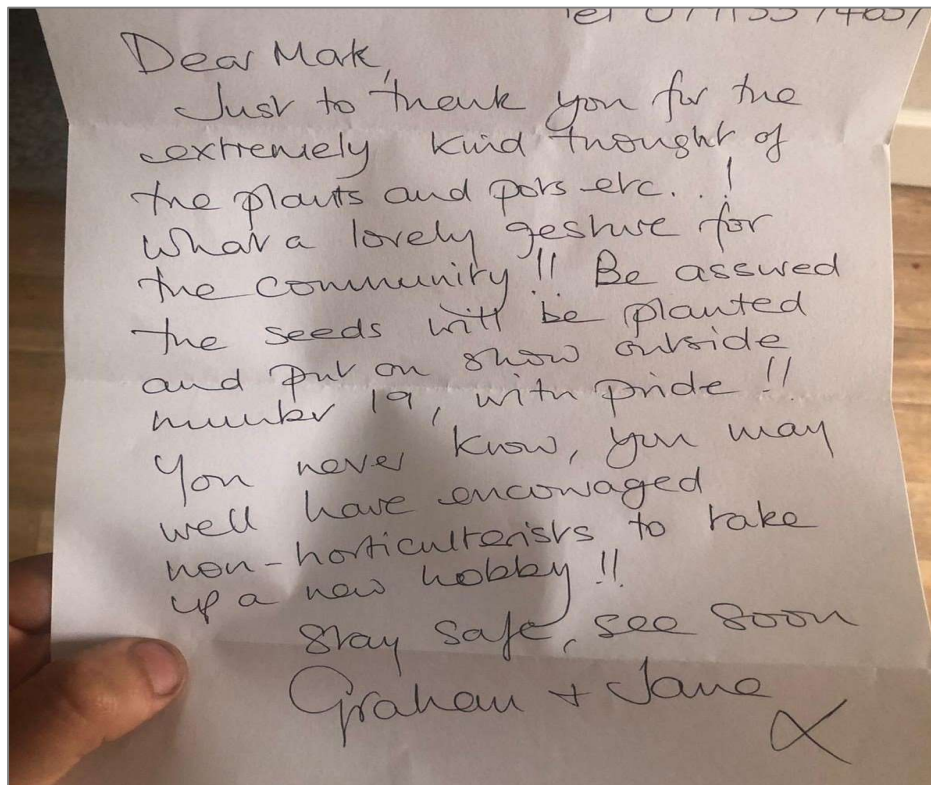 Tel
Dear Mark,
Just to thank you for the
extremely kind thought of
the plants and pots etc..!
What a lovely gesture for
the community!! Be assured
the seeds will be planted
and put on show outside
number 19, with pride!!
You never know, you may
well have encouraged
non-horticulturists to take
up a new hobby!!
Stay safe, see soon
Graham + Jane
X